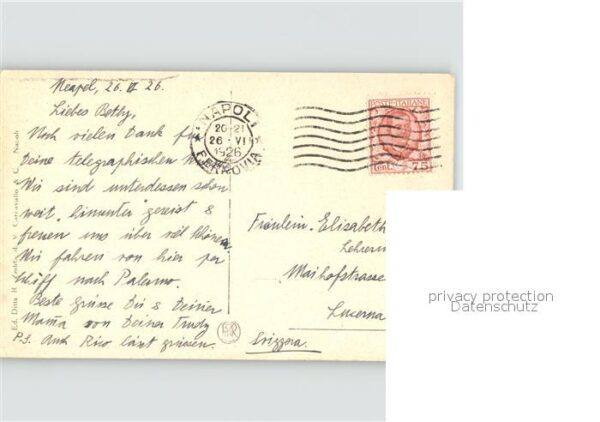 Neapel, 26. VI 26.
Liebes Bethy,
Noch vielen Dank für
Deine telegraphischen
Wir sind unterdessen schon
weit "hinunter" gereist &
freuen uns über viel Schönes.
Wir fahren von hier per
Schiff nach Palermo.
Beste Grüsse Dir & Deiner
Mama von Deiner Trudy
P.S. Auch Rico lässt grüssen.
NAPOLI
20-21
26 VI
1926
FERROVIA
POSTE ITALIANE
Cent. 75
Fräulein Elisabeth
Lehrerin
Maihofstrasse
Lucerna
Svizzera
Ed. Ditta
Napoli
privacy protection
Datenschutz